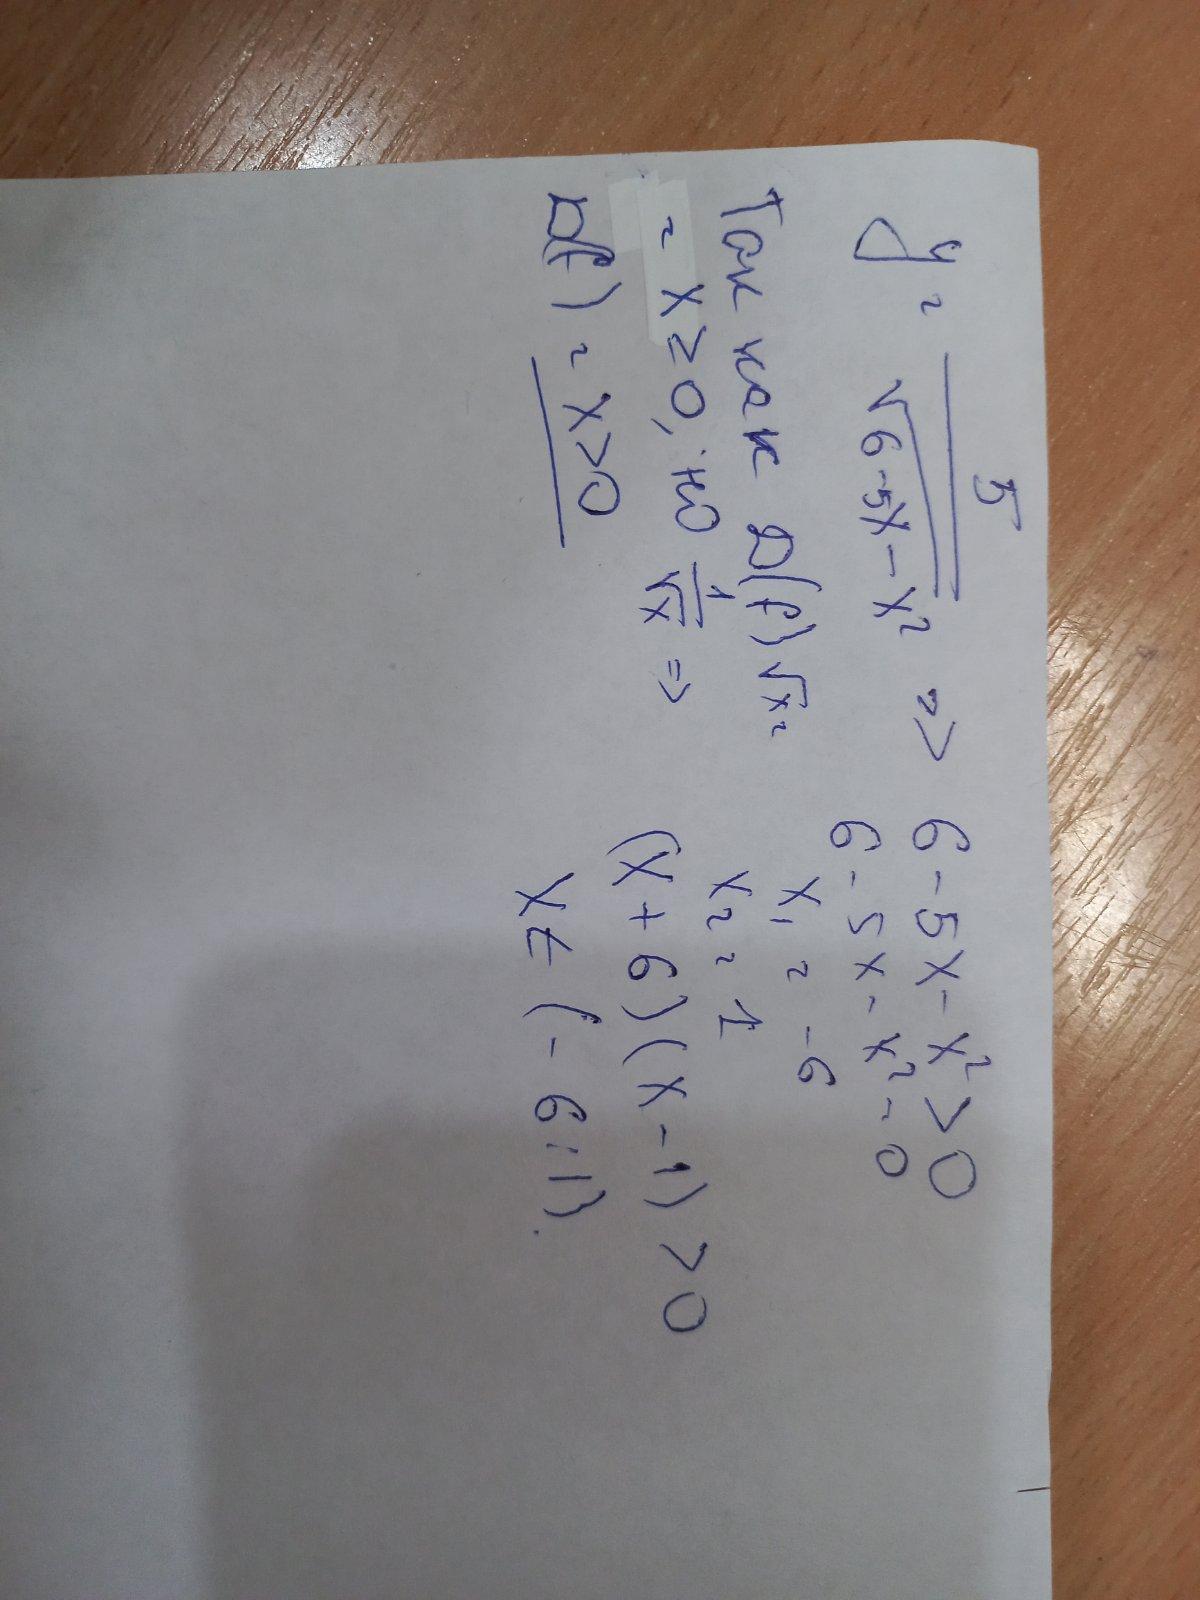 y = 5 / √6-5x-x² => 6-5x-x²>0
6-5x-x²=0
x₁ = -6
x₂ = 1
(x+6)(x-1)>0
x ∈ (-6;1).
Так как D(f) √x =
= x≥0, но 1/√x =>
D(f) = x>0